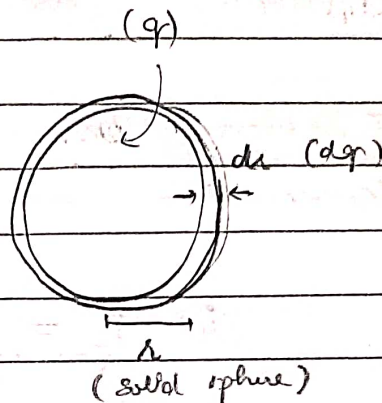 (q)
dr (dq)
r
(solid sphere)